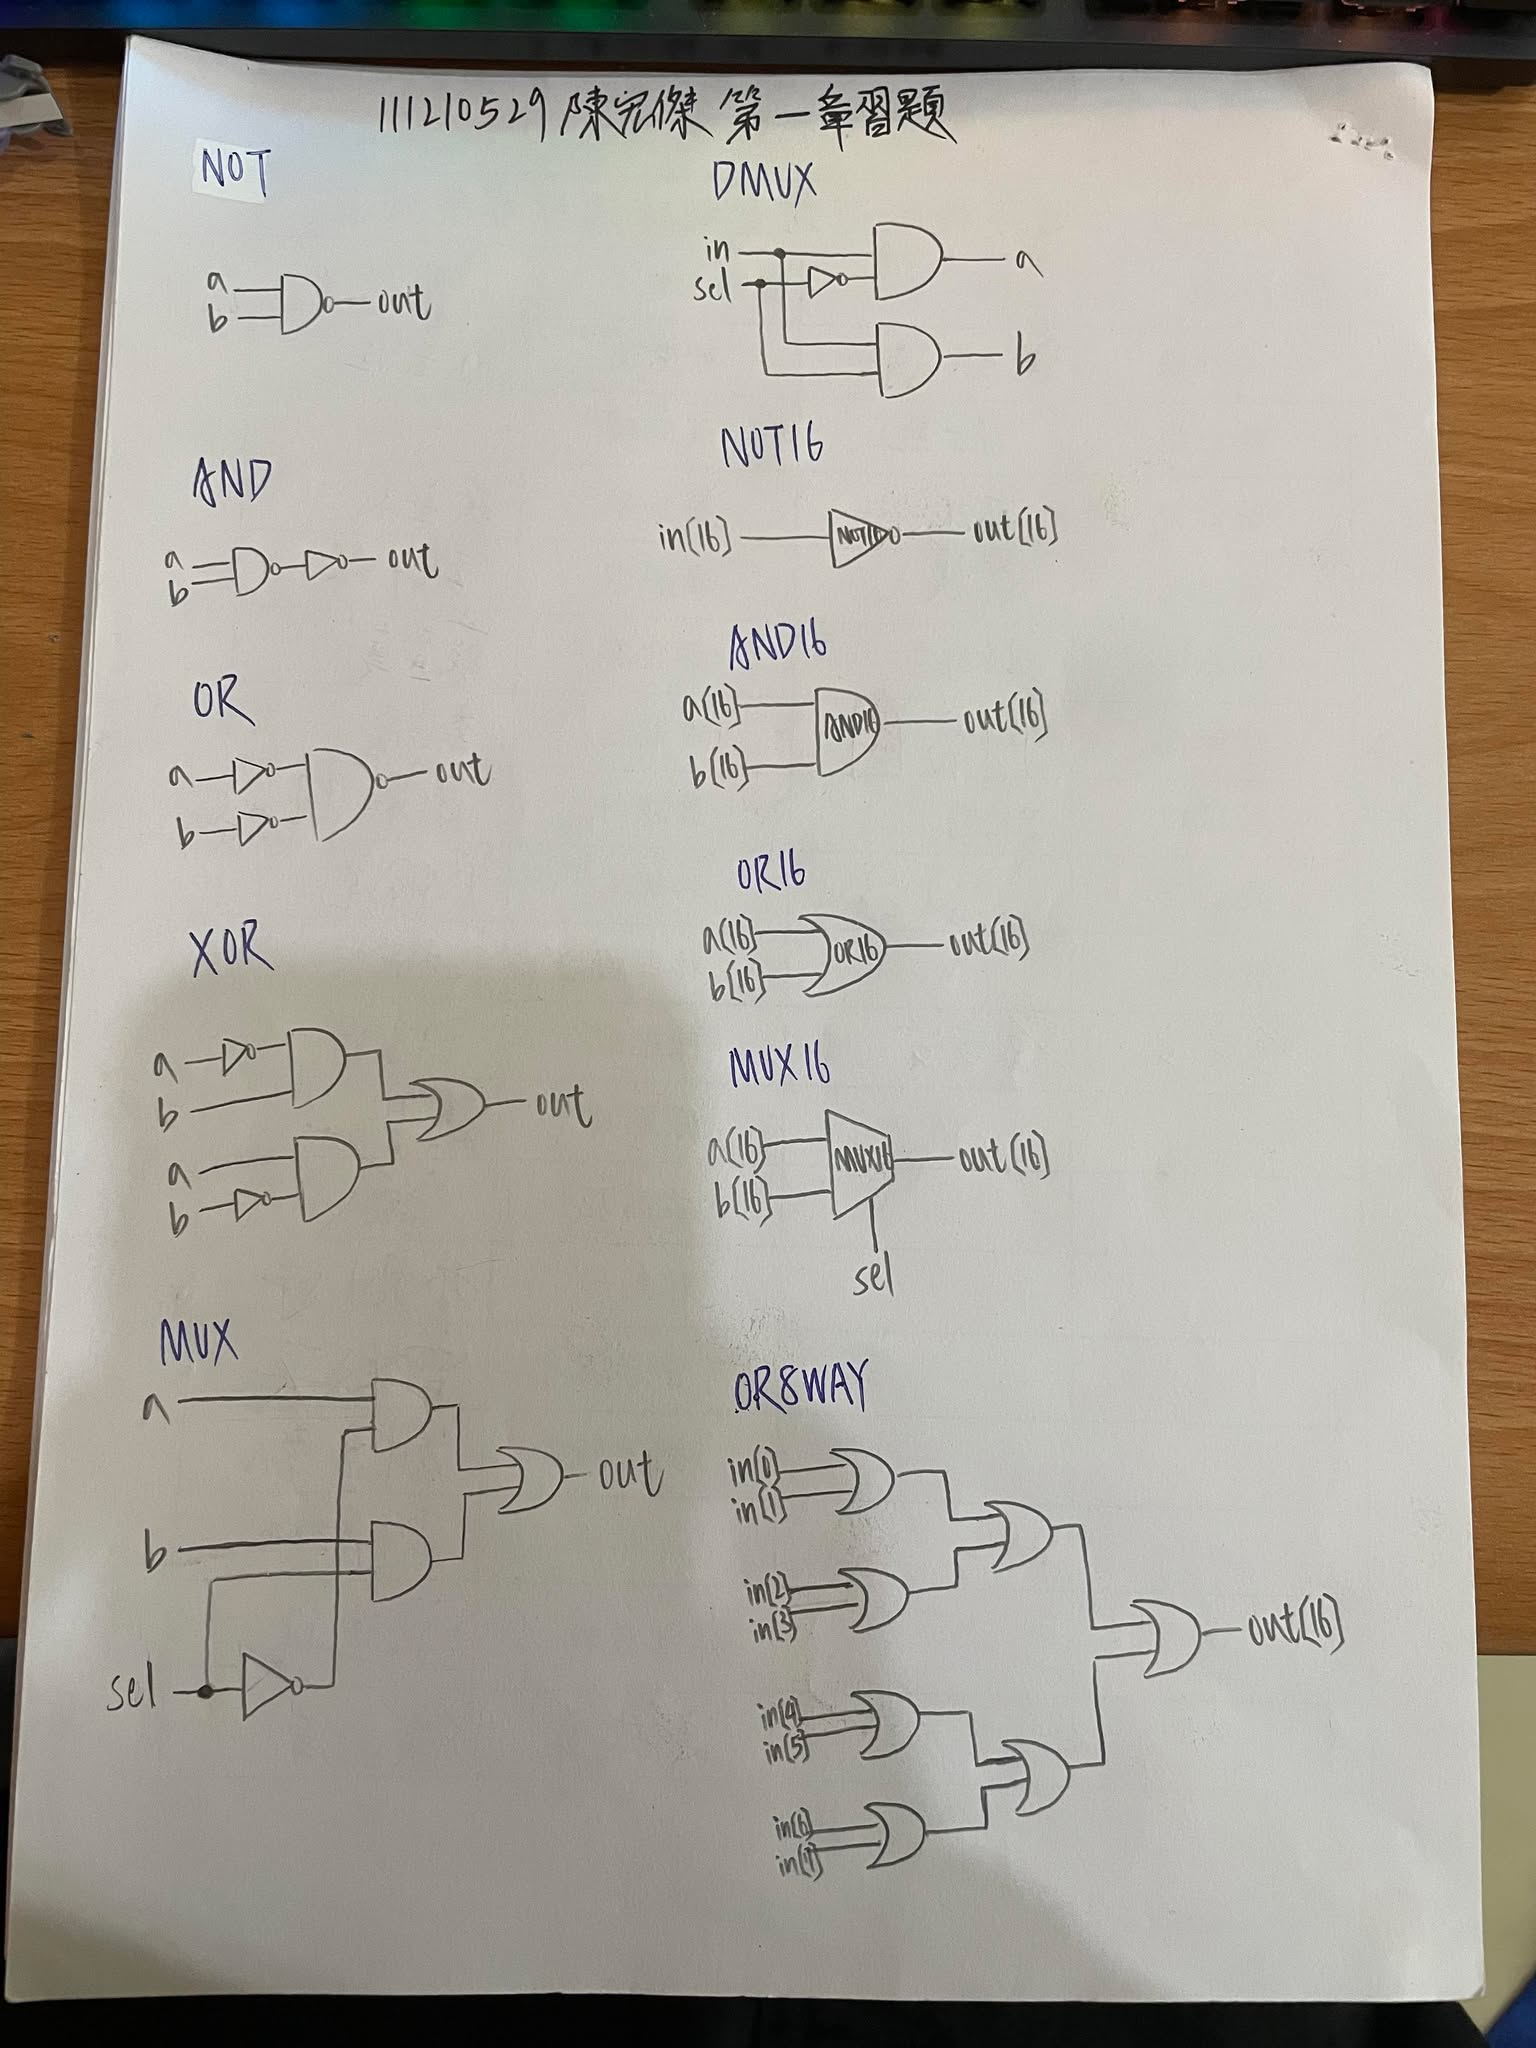 111210529 陳宏傑 第一章習題
NOT
a
b
out
AND
a
b
out
OR
a
b
out
XOR
a
b
a
b
out
MUX
a
b
sel
out
DMUX
in
sel
a
b
NOT16
in[16]
NOT16
out[16]
AND16
a[16]
b[16]
AND16
out[16]
OR16
a[16]
b[16]
OR16
out[16]
MUX16
a[16]
b[16]
MUX16
out[16]
sel
OR8WAY
in[0]
in[1]
in[2]
in[3]
in[4]
in[5]
in[6]
in[7]
out[16]